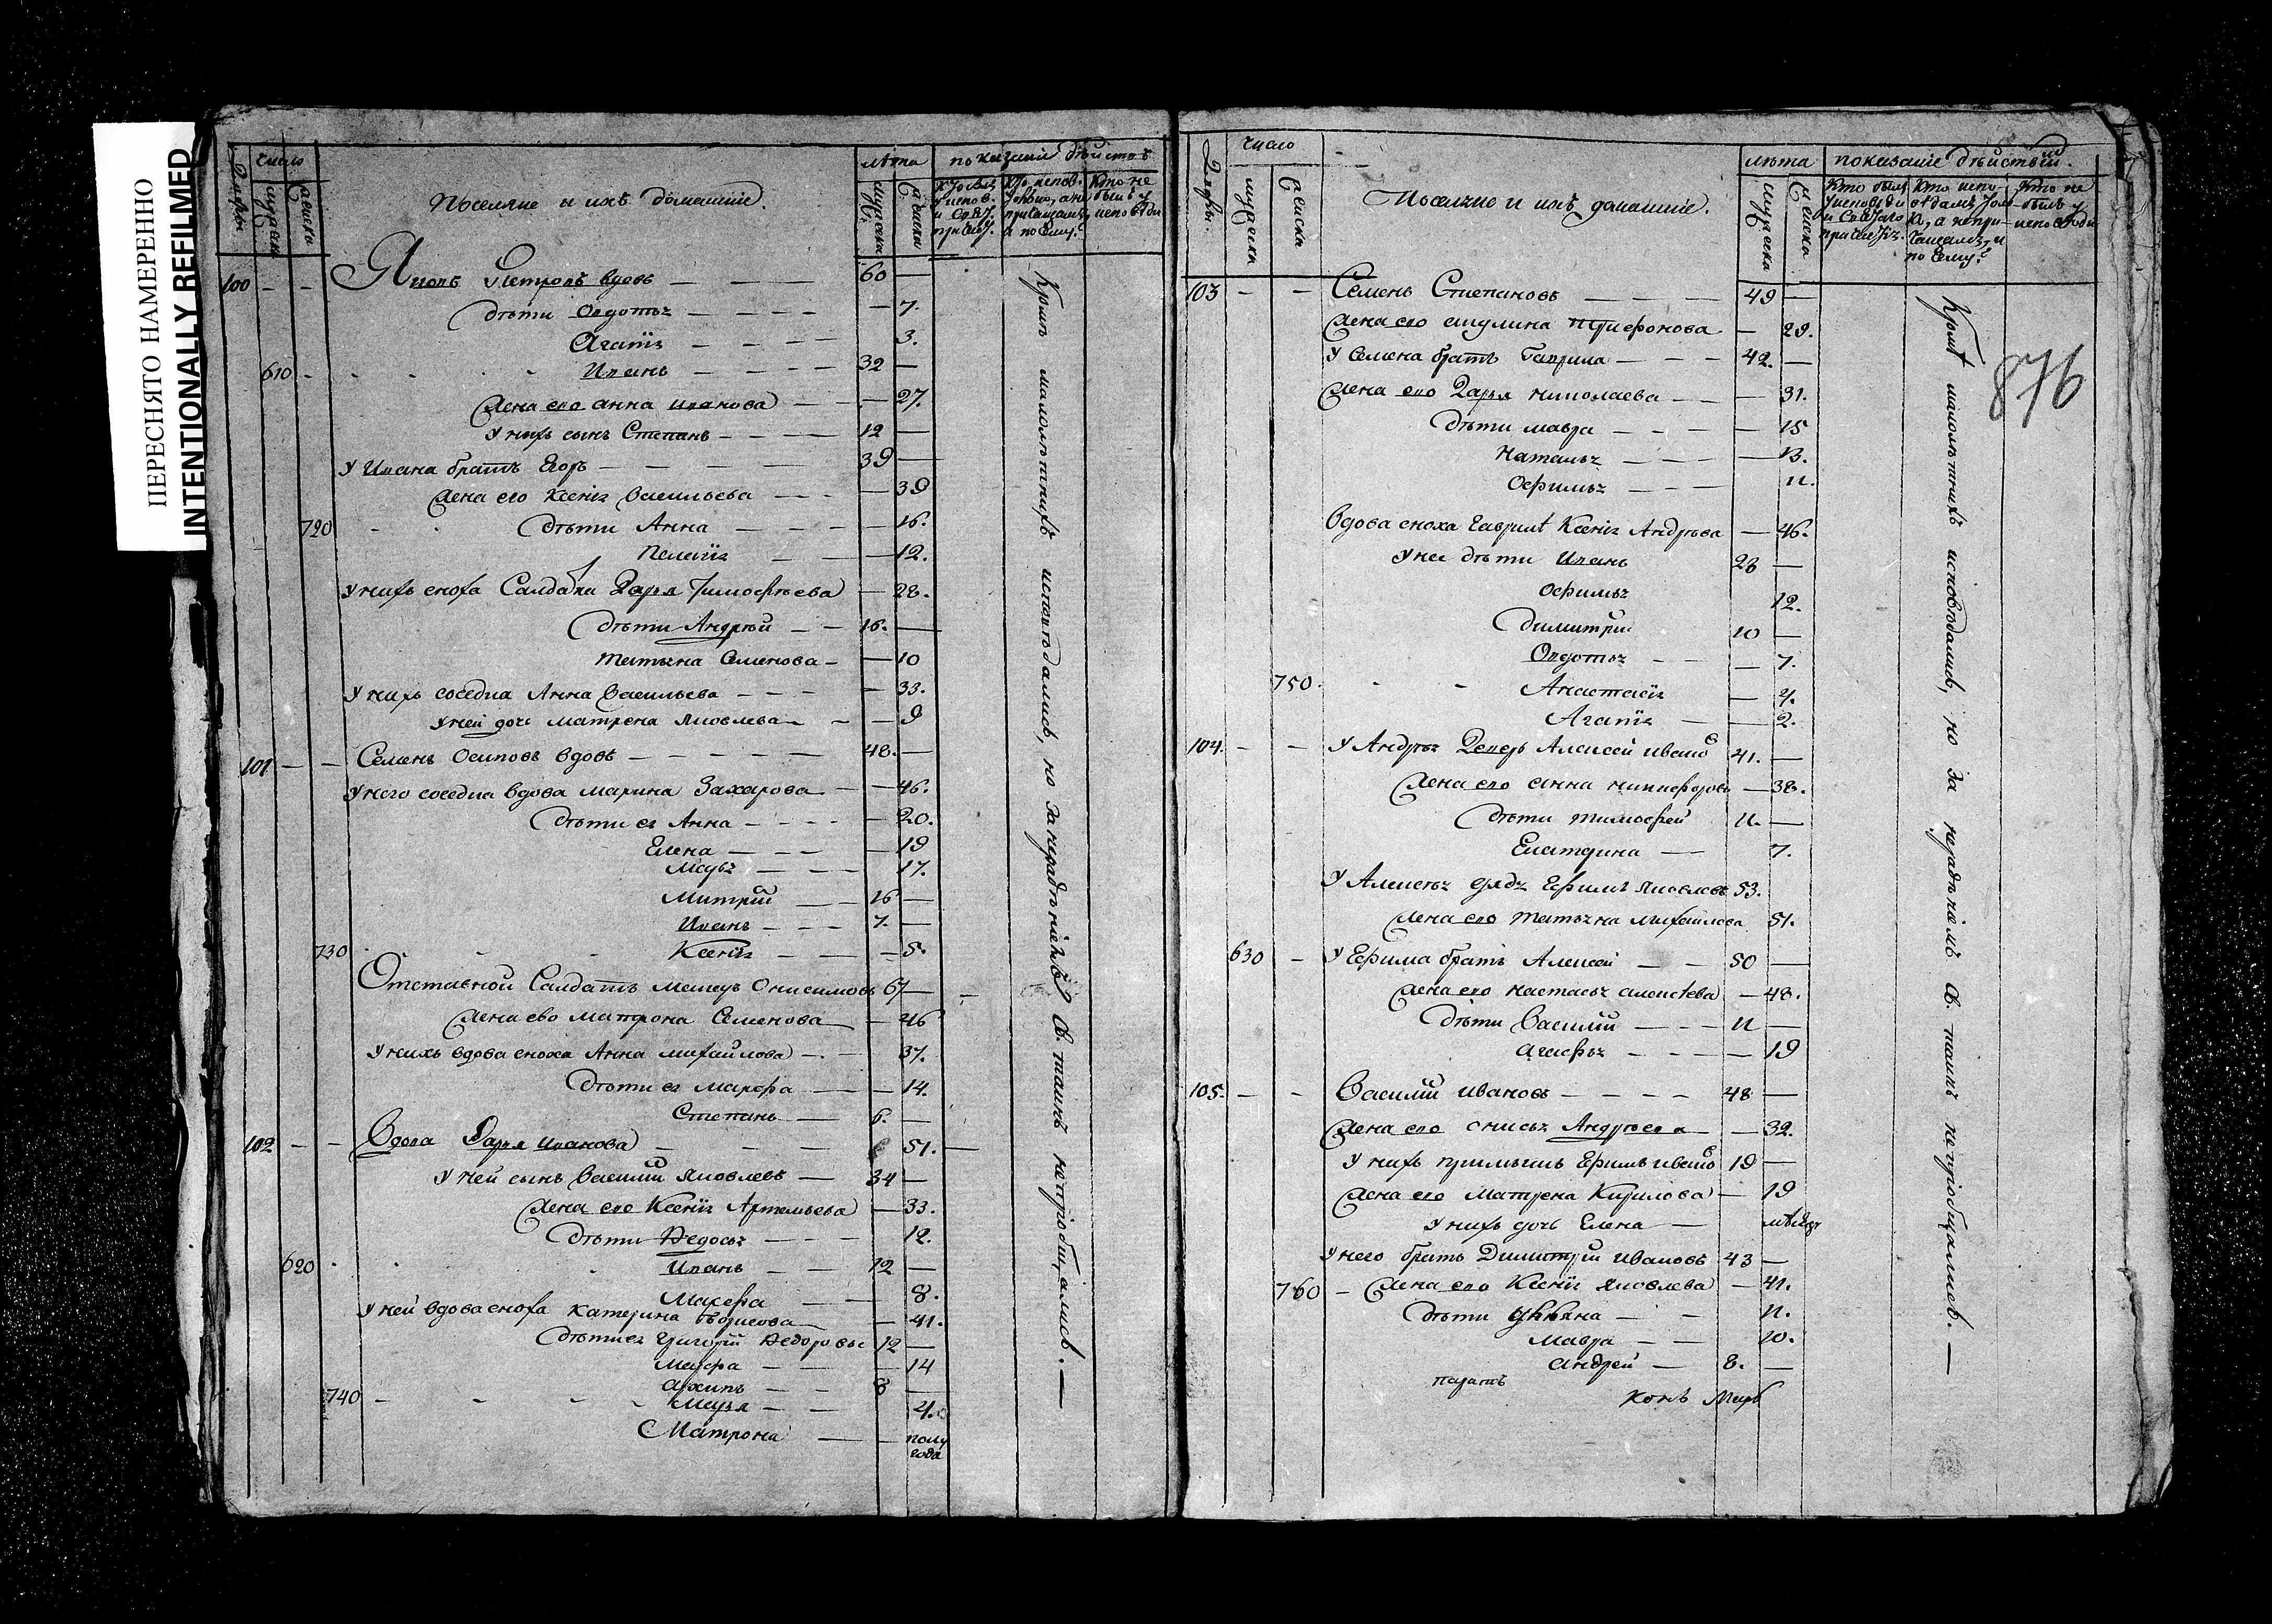 ПЕРЕСНЯТО НАМЕРЕННО
INTENTIONALLY REFILMED
Дворы
число
мужеска
женска
Поселяне и ихъ домашніе.
лѣта
мужеска
женска
показаніе дѣйствъ
Кто не былъ у исповѣди
100 Петровъ вдовъ 60
дѣти Овдотья 7.
Агапія 3.
610 Иванъ 32
Жена ево Анна Иванова 27.
У нихъ сынъ Степанъ 12
У Ивана братъ Егоръ 39
Жена ево Ксенія Васильева 39
720 Дѣти Анна 16.
Пелагія 12.
У нихъ сноха Салдатка Дарья Тимофѣева 28.
Дѣти Андрѣй 16.
Татьяна Семенова 10
У нихъ соседка Анна Васильева 33.
У ней дочь Матрена Яковлева 9
101 Семенъ Осиповъ вдовъ 48.
У него соседка вдова Марина Захарова 46.
Дѣти ея Анна 20.
Елена 19
Марья 17.
Митрій 16
Иванъ 7.
730 Ксенія 5.
Отставной Салдатъ Онисимовъ 67
Жена ево Матрона Семенова 46
У нихъ вдова сноха Анна Михайлова 37.
Дѣти ея Марфа 14.
Степанъ 6.
102 Вдова Дарья Иванова 51.
У ней сынъ Василій Яковлевъ 34
Жена ево Ксенія Артемьева 33.
Дѣти Ѳедосья 12.
620 Иванъ 12
Марфа 8.
У ней вдова сноха Катерина Борисова 41.
Дѣти ея Григорій Ѳедоровъ 12
Марфа 14
Архипъ 8
740 Марья 4.
Матрона полугода
Кромѣ малолѣтнихъ исповѣдались, но за нерадѣніемъ Св. таинъ непріобщались.
Дворы.
число
мужеска
женска
Поселяне и ихъ домашніе.
лѣта
мужеска
женска
показаніе дѣйствій.
Кто былъ у исповѣди и Святаго причастія.
Кто исповѣдался только, а не причащался, и по чему?
Кто не былъ у исповѣди
876
103 Семенъ Степановъ 49
Жена ево Акулина Трифонова 29.
У Семена братъ Гаврила 42.
Жена ево Дарья Николаева 31.
Дѣти Мавра 15
Наталья 13.
Офимья 11.
Вдова сноха Гаврилѣ Ксенія Андрѣева 46.
У нее дѣти Иванъ 28
Офимья 12.
Димитрій 10
Овдотья 7.
750 Анастасія 4.
Агапія 2.
104. У Андрѣя Алексей Ивановъ 41.
Жена ево Анна Никифорова 38.
Дѣти Тимофей 11.
Екатерина 7.
У Алексея дядя Ефимъ Яковлевъ 53.
Жена ево Татьяна Михайлова 51.
630 У Ефима братъ Алексей 50
Жена ево Настасья Алексѣева 48.
Дѣти Василій 11
Агафья 19
105. Василій Ивановъ 48
Жена ево Анисья Андрѣева 32.
У нихъ Ефимъ Ивановъ 19
Жена ево Матрена Кирилова 19
У нихъ дочь Елена
У него братъ Димитрій Ивановъ 43
760 Жена ево Ксенія Яковлева 41.
Дѣти Ульяна 11.
Мавра 10.
Андрей 8.
Кромѣ малолѣтнихъ исповѣдались, но за нерадѣніемъ Св. таинъ непріобщались.